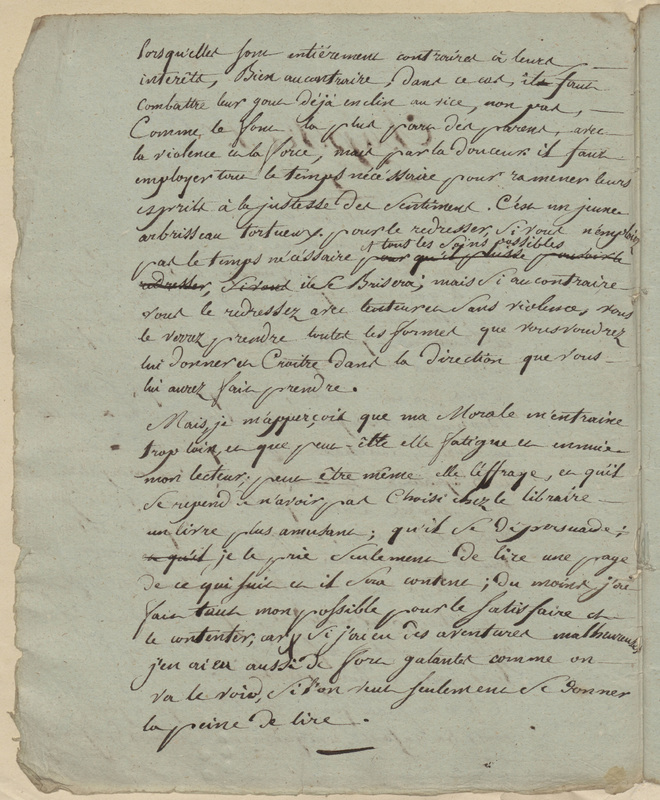 lorsqu'elles sont entiérement contraires à leurs
interêts, Bien aucontraire, dans ce cas, il faut
combattre leur gout déjà enclin au vice, non pas,
Comme le font la plus part des parens, avec
la violence et la force, mais par la douceur. il faut
employer tout le temps nécéssaire pour ramener leurs
esprits à la justesse des sentiment. C'est un jeune
arbrisseau tortueux. pour le redresser, si vous n'employez
pas le temps nécéssaire et tous les soins possibles pour qu'il puisse pouvoir le
redresser, Si vous il se Brisera; mais si au contraire
vous le redressez avec lenteur et sans violence, vous
le verrez prendre toutes les formes que vous voudrez
lui donner et Croitre dans la direction que vous
lui aurez fait prendre.
Mais, je m'apperçois que ma Morale m'entraine
trop loin, et que peut-être elle fatigue et ennuie
mon lecteur; peut être même elle l'effraye, et qu'il
se repend de n'avoir pas Choisi chez le libraire
un livre plus amusant; qu'il se dépersuade;
et qu'il je le prie seulement de lire une page
de ce qui suit et il sera content; du moins j'ai
fait tout mon possible pour le satisfaire et
le contenter, car si j'ai eu des aventures malheureuses
j'en ai eu aussi de fort galantes comme on
va le voir, si l'on veut seulement se donner
la peine de lire.